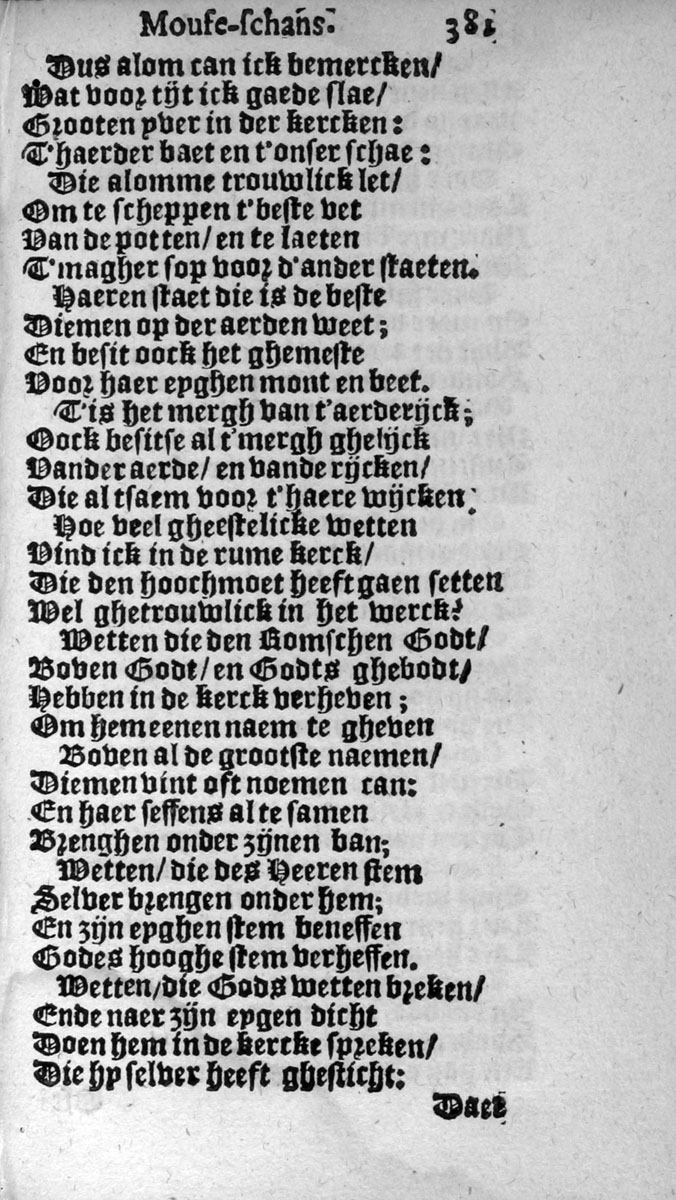 Mouse-schans. 381
Dus alom can ick bemercken/
Wat voor tijt ick gaede slae/
Grooten yver in der kercken:
T'haerder baet en t'onser schae:
Die alomme trouwlick let/
Om te scheppen t'beste vet
Van de potten/ en te laeten
T'magher sop voor d'ander staeten.
Haeren staet die is de beste
Diemen op der aerden weet;
En besit oock het ghemeste
Voor haer eyghen mont en beet.
T'is het mergh van t'aerderijck;
Oock besitse al t'mergh ghelijck
Vander aerde/ en vande rijcken/
Die al tsaem voor t'haere wijcken:
Hoe veel gheestelicke wetten
Vind ick in de rume kerck/
Die den hoochmoet heeft gaen setten
Wel ghetrouwlick in het werck!
Wetten die den Romschen Godt/
Boven Godt/ en Godts ghebodt/
Hebben in de kerck verheven;
Om hem eenen naem te gheven
Boven al de grootste naemen/
Diemen vint oft noemen can:
En haer seffens al te samen
Brenghen onder zijnen ban;
Wetten/ die des Heeren stem
Selver brengen onder hem;
En zijn eyghen stem beneffen
Godes hooghe stem verheffen.
Wetten/ die Gods wetten breken/
Ende naer zijn eygen dicht
Doen hem in de kercke spreken/
Die hy selver heeft ghesticht:
Daer